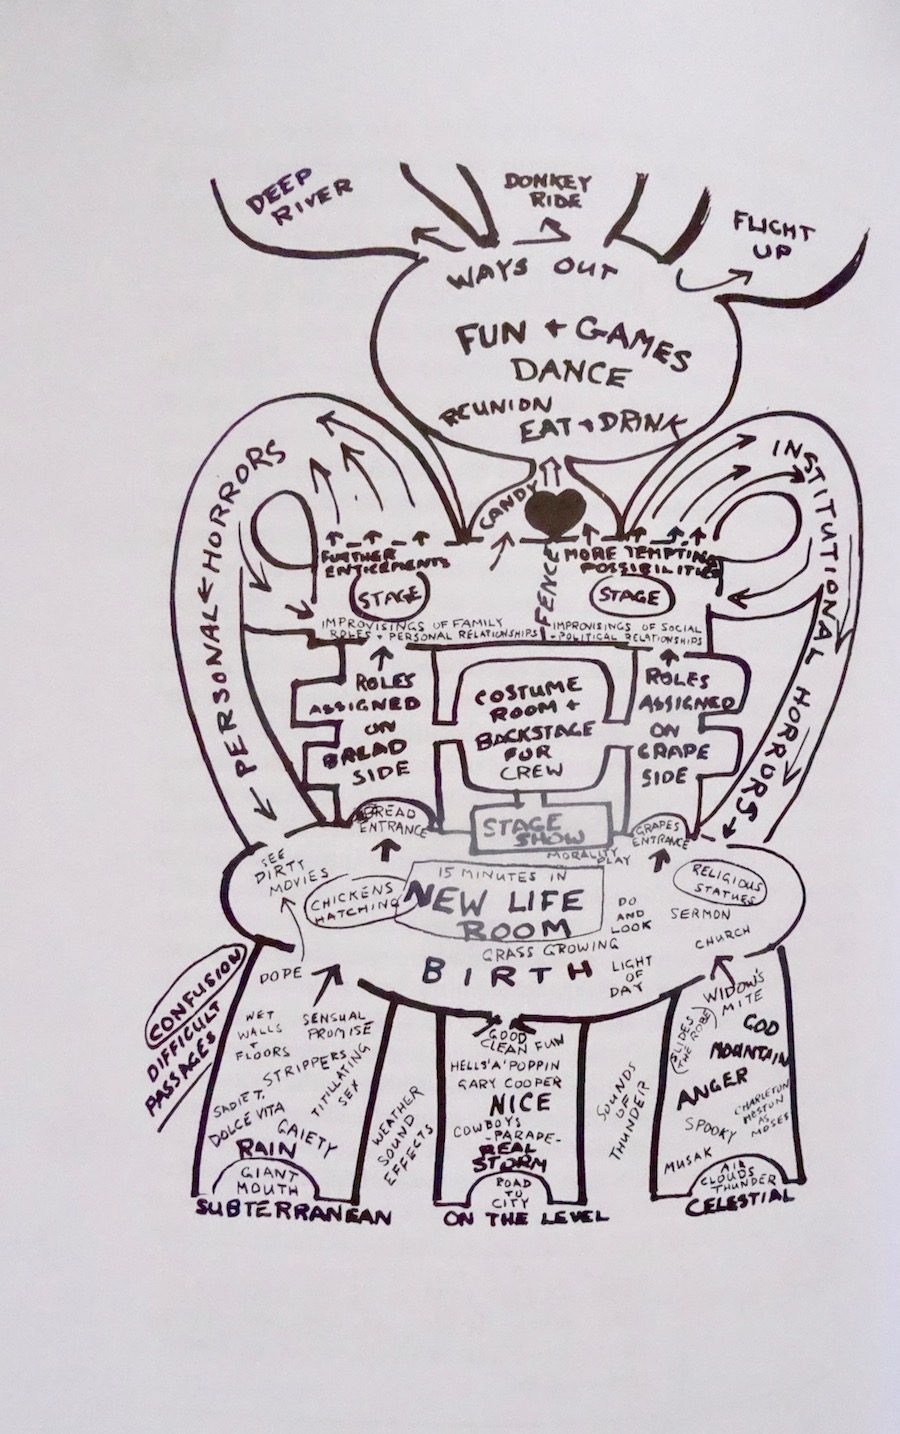 DEEP
RIVER
DONKEY
RIDE
FLIGHT
UP
WAYS OUT
FUN + GAMES
DANCE
REUNION
EAT + DRINK
CANDY
PERSONAL HORRORS
INSTITUTIONAL HORRORS
FURTHER
ENTICEMENTS
MORE TEMPTING
POSSIBILITIES
STAGE
FENCE
STAGE
IMPROVISINGS OF FAMILY
ROLES + PERSONAL RELATIONSHIPS
IMPROVISINGS OF SOCIAL
+ POLITICAL RELATIONSHIPS
ROLES
ASSIGNED
ON
BREAD
SIDE
COSTUME
ROOM +
BACKSTAGE
FOR
CREW
ROLES
ASSIGNED
ON
GRAPE
SIDE
BREAD
ENTRANCE
STAGE
SHOW
MORALITY
PLAY
GRAPES
ENTRANCE
SEE
DIRTY
MOVIES
CHICKENS
HATCHING
15 MINUTES IN
NEW LIFE
ROOM
GRASS GROWING
BIRTH
DO
AND
LOOK
LIGHT
OF
DAY
RELIGIOUS
STATUES
SERMON
CHURCH
CONFUSION
DIFFICULT
PASSAGES
DOPE
WET
WALLS
+
FLOORS
SENSUAL
PROMISE
STRIPPERS
TITILLATING
SEX
SADIE T.
DOLCE VITA
GAIETY
RAIN
GIANT
MOUTH
SUBTERRANEAN
WEATHER
SOUND
EFFECTS
GOOD
CLEAN FUN
HELLS'A'POPPIN
GARY COOPER
NICE
COWBOYS
-PARADE-
REAL
STORM
ROAD
TO
CITY
ON THE LEVEL
SOUNDS
OF
THUNDER
WIDOW'S
MITE
SLIDES
THE ROBE
GOD
MOUNTAIN
ANGER
CHARLETON
HESTON
AS
MOSES
SPOOKY
MUSAK
AIR
CLOUDS
THUNDER
CELESTIAL